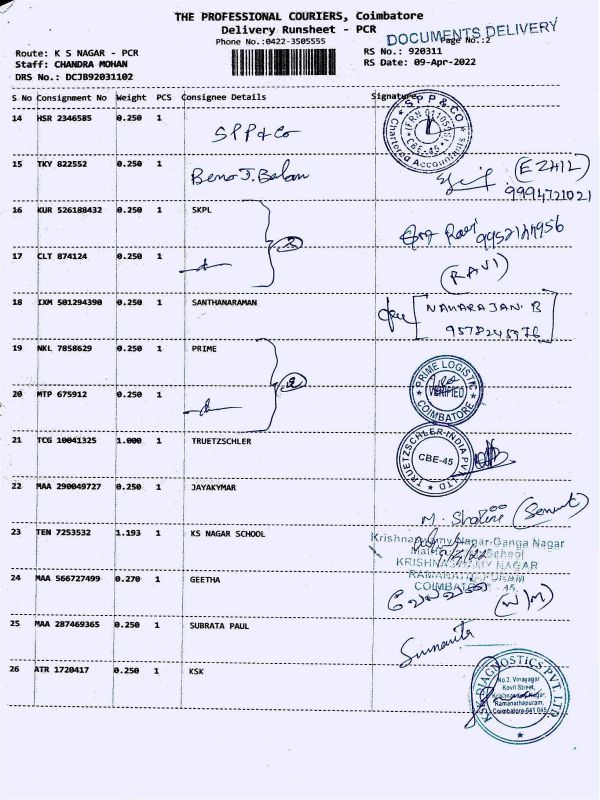 THE PROFESSIONAL COURIERS, Coimbatore
Delivery Runsheet - PCR
DOCUMENTS DELIVERY
Phone No.:0422-3505555
Page No.:2
Route: K S NAGAR - PCR
RS No.: 920311
Staff: CHANDRA MOHAN
RS Date: 09-Apr-2022
DRS No.: DCJB92031102
S No Consignment No Weight PCS Consignee Details Signature
14 HSR 2346585 0.250 1 SPP & Co
SPP & CO
Chartered Accountants
CBE-45
15 TKY 822552 0.250 1 Beno J. Balan
(EZHIL)
9994721021
16 KUR 526188432 0.250 1 SKPL
2
Ravi
17 CLT 874124 0.250 1
(RAVI)
18 IXM 501294390 0.250 1 SANTHANARAMAN
B
19 NKL 7858629 0.250 1 PRIME
2
PRIME LOGISTIC
VERIFIED
COIMBATORE
20 MTP 675912 0.250 1
21 TCG 10041325 1.000 1 TRUETZSCHLER
TRUETZSCHLER-INDIA PVT LTD
CBE-45
22 MAA 290049727 0.250 1 JAYAKYMAR
23 TEN 7253532 1.193 1 KS NAGAR SCHOOL
Nagar-Ganga Nagar
School
KRISHNASWAMY NAGAR
RAMANATHAPURAM
COIMBATORE - 45.
24 MAA 566727499 0.270 1 GEETHA
(W/M)
25 MAA 287469365 0.250 1 SUBRATA PAUL
26 ATR 1720417 0.250 1 KSK
KSK DIAGNOSTICS PVT. LTD.
No.3, Vinayagar
Kovil Street,
Krishnaswamy Nagar,
Ramanathapuram,
Coimbatore-641 045